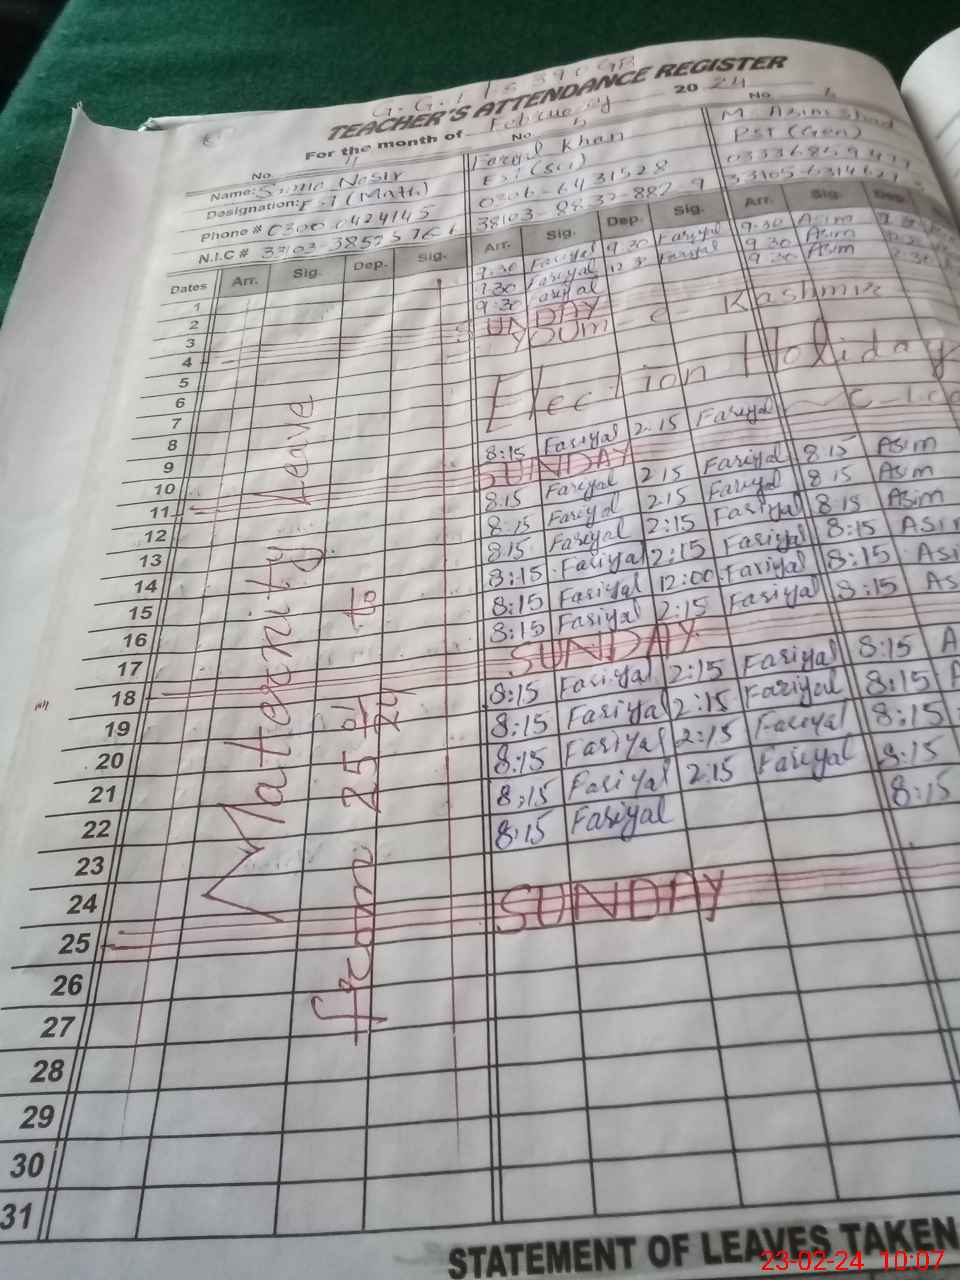 TEACHER'S ATTENDANCE REGISTER
For the month of February 2024
No. 11 No. No.
Name: Nasir Khan M Asim
Designation: EST (Math) EST (Sci) PST (Gen)
Phone # 03000424145 0306-6431528
N.I.C #
Dates Arr. Sig. Dep. Sig. Arr. Sig. Dep. Sig. Arr. Sig. Dep.
1 9:30 Fariyal 9:30 Asim
2 Fariyal 12:30 Fariyal 9:30 Asim
3 9:30 Fariyal 9:30 Asim
4 SUNDAY
5 Youm-e-Kashmir
6 Election Holiday
7
8
9
10 8:15 Fariyal 2:15 Fariyal
11 SUNDAY
12 8:15 Fariyal 2:15 Fariyal 8:15 Asim
13 8:15 Fariyal 2:15 Fariyal 8:15 Asim
14 8:15 Fariyal 2:15 Fariyal 8:15 Asim
15 8:15 Fariyal 2:15 Fariyal 8:15 Asi
16 8:15 Fariyal 12:00 Fariyal 8:15 Asi
17 8:15 Fariyal 2:15 Fariyal 8:15 As
18 SUNDAY
19 8:15 Fariyal 2:15 Fariyal 8:15 A
20 8:15 Fariyal 2:15 Fariyal 8:15
21 8:15 Fariyal 2:15 Fariyal 8:15
22 8:15 Fariyal 2:15 Fariyal 8:15
23 8:15 Fariyal 8:15
24
25 SUNDAY
26
27
28
29
30
31
Maternity Leave
from 25 01/24 to
STATEMENT OF LEAVES TAKEN
23-02-24 10:07